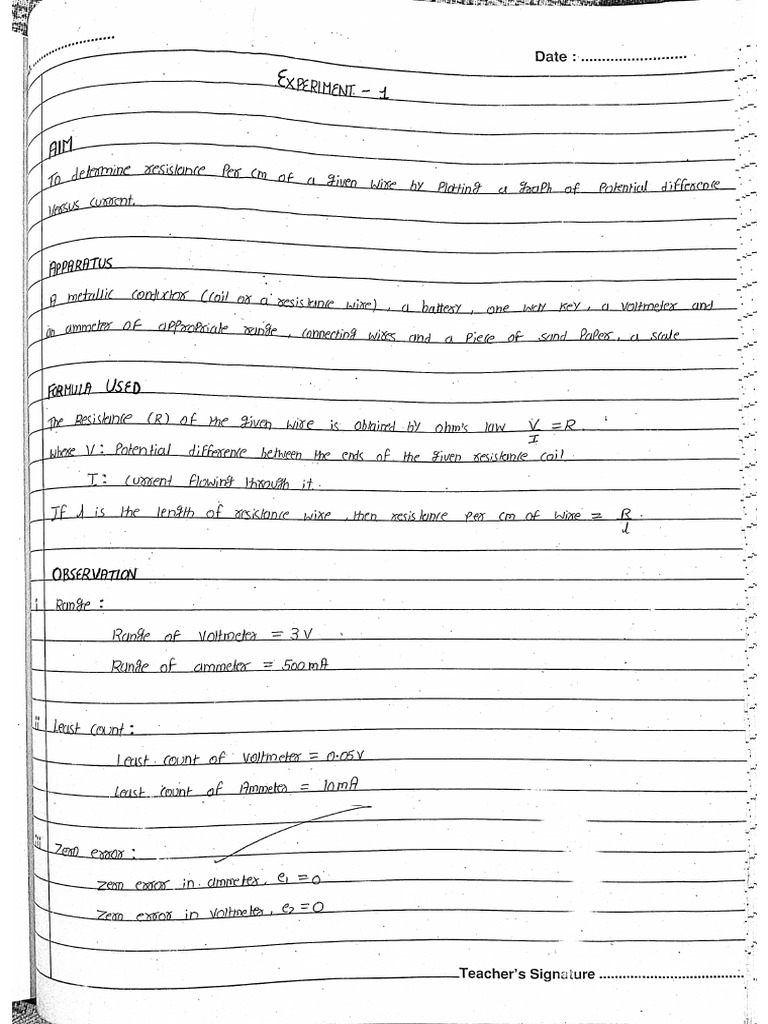 Date : ..........................
EXPERIMENT - 1
AIM
To determine resistance Per cm of a given wire by Plotting a graph of Potential difference
versus current.
APPARATUS
A metallic conductor (coil or a resistance wire), a battery, one way key, a voltmeter and
an ammeter of appropriate range, connecting wires and a Piece of sand Paper, a scale
FORMULA USED
The Resistance (R) of the given wire is obtained by ohm's law V/I = R
where V: Potential difference between the ends of the given resistance coil
I: current flowing through it.
If l is the length of resistance wire, then resistance per cm of wire = R/l.
OBSERVATION
i Range:
Range of voltmeter = 3V
Range of ammeter = 500mA
ii Least count:
Least count of voltmeter = 0.05V
Least count of Ammeter = 10mA
iii Zero error:
Zero error in ammeter, e1 = 0
Zero error in voltmeter, e2 = 0
Teacher's Signature ....................................